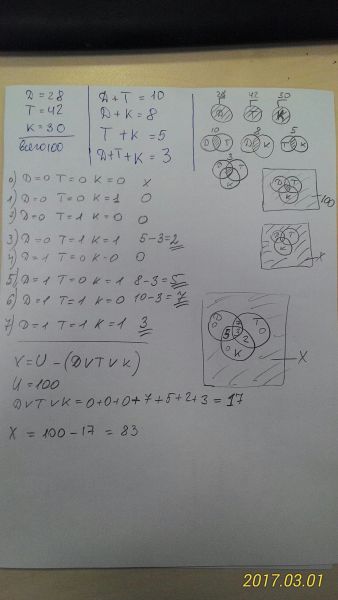 D = 28
T = 42
K = 30
Всего 100
D+T = 10
D+K = 8
T+K = 5
D+T+K = 3
28 42 30
D T K
10 8 5
D T D K T K
3
D T
K
D T
K
100
T
K
X
0) D=0 T=0 K=0 X
1) D=0 T=0 K=1 0
2) D=0 T=1 K=0 0
3) D=0 T=1 K=1 5-3=2
4) D=1 T=0 K=0 0
5) D=1 T=0 K=1 8-3=5
6) D=1 T=1 K=0 10-3=7
7) D=1 T=1 K=1 3
D T
0 7 0
5 3 2
0 K
X
X=U-(D∨T∨K)
U=100
D∨T∨K=0+0+0+7+5+2+3=17
X = 100-17 = 83
2017.03.01